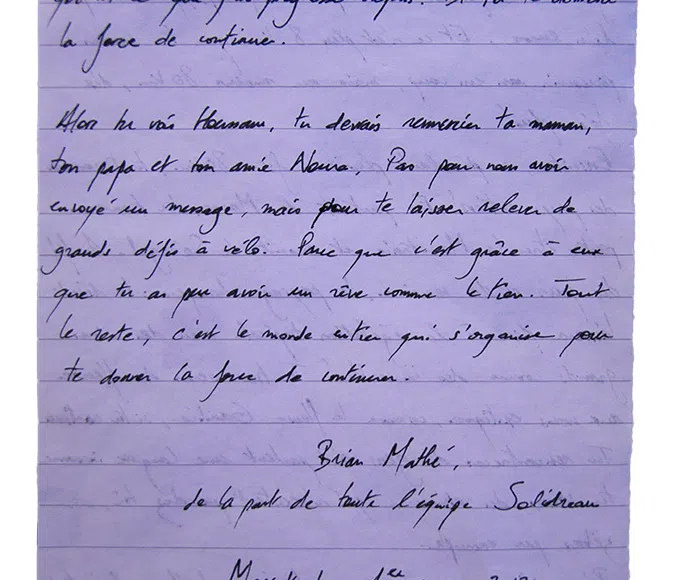 la force de continuer.
Alors tu vois Hoernam, tu devrais remercier ta maman,
ton papa et ton amie Noura, Pas pour nous avoir
envoyé un message, mais pour te laisser relever de
grands défis à vélo. Parce que c'est grâce à eux
que tu as peu avoir un rêve comme le tien. Tout
le reste, c'est le monde entier qui s'organise pour
te donner la force de continuer.
Brian Mathé,
de la part de toute l'équipe Solidreau